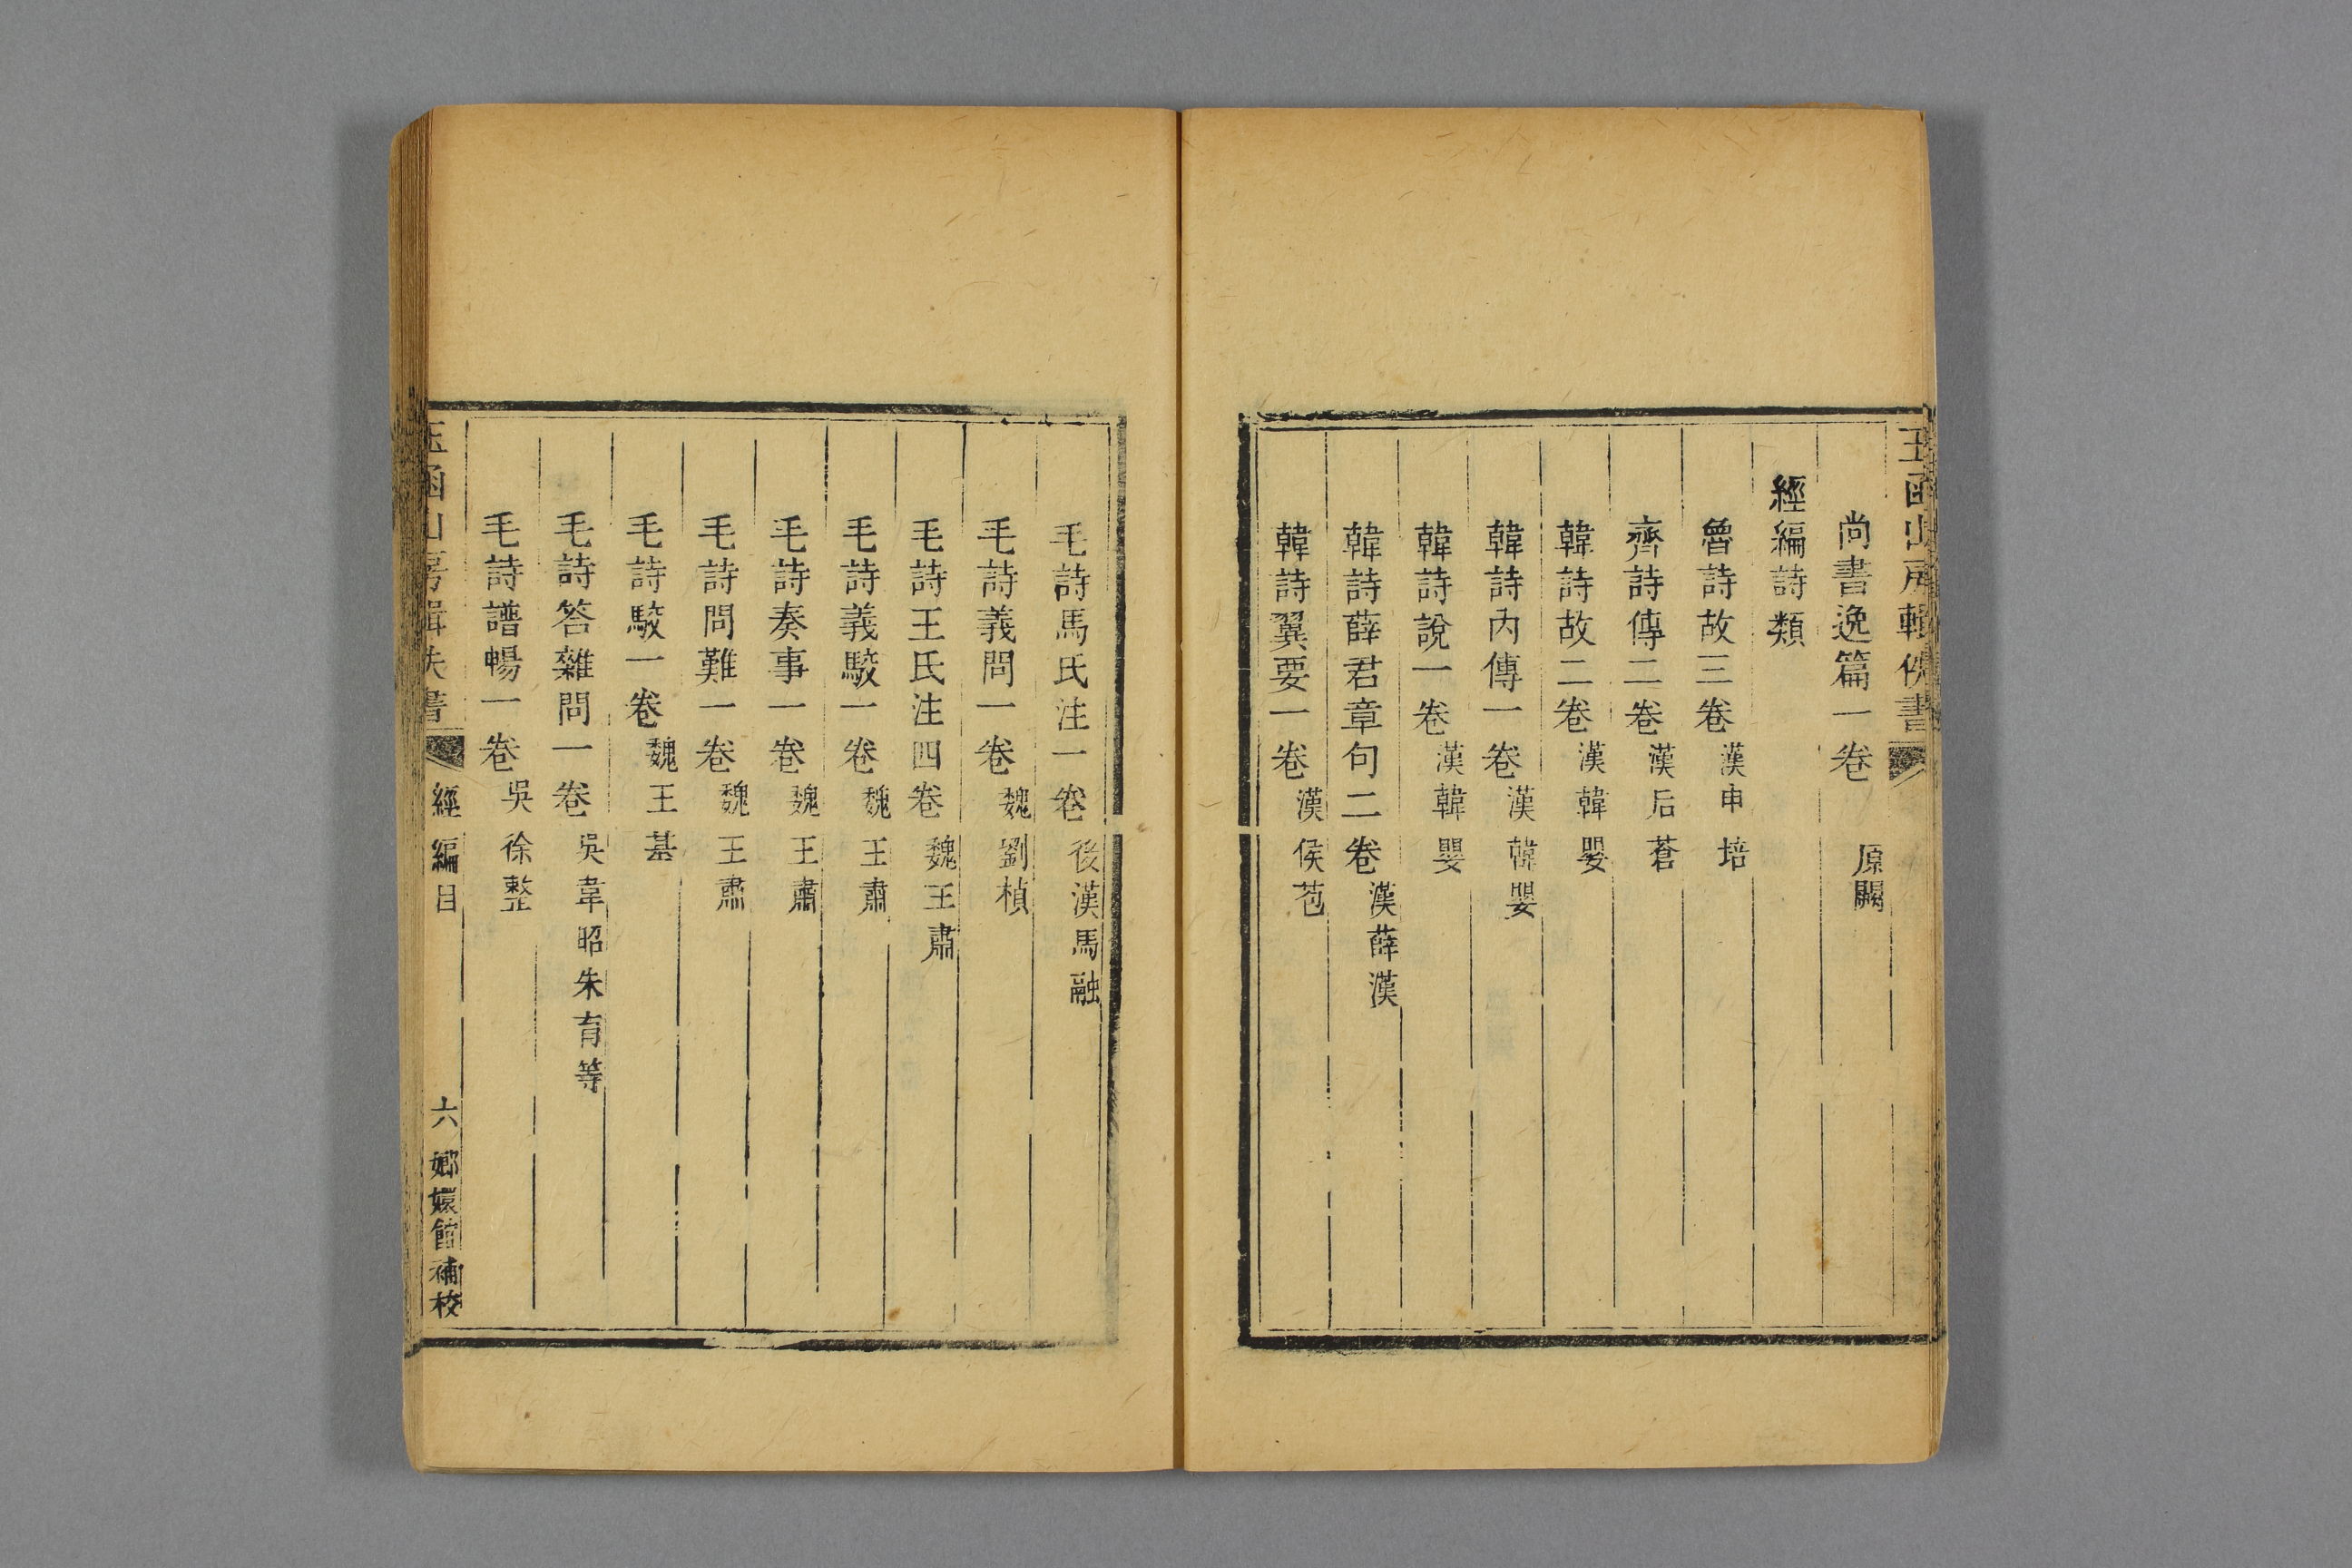 玉函山房輯佚書
尚書逸篇一卷 原闕
經編詩類
魯詩故三卷 漢申培
齊詩傳二卷 漢后蒼
韓詩故二卷 漢韓嬰
韓詩內傳一卷 漢韓嬰
韓詩說一卷 漢韓嬰
韓詩薛君章句二卷 漢薛漢
韓詩翼要一卷 漢侯苞
毛詩馬氏注一卷 後漢馬融
毛詩義問一卷 魏劉楨
毛詩王氏注四卷 魏王肅
毛詩義駮一卷 魏王肅
毛詩奏事一卷 魏王肅
毛詩問難一卷 魏王肅
毛詩駮一卷 魏王基
毛詩答雜問一卷 吳韋昭朱育等
毛詩譜暢一卷 吳徐整
玉函山房輯佚書 經編目 六 嫏嬛館補校